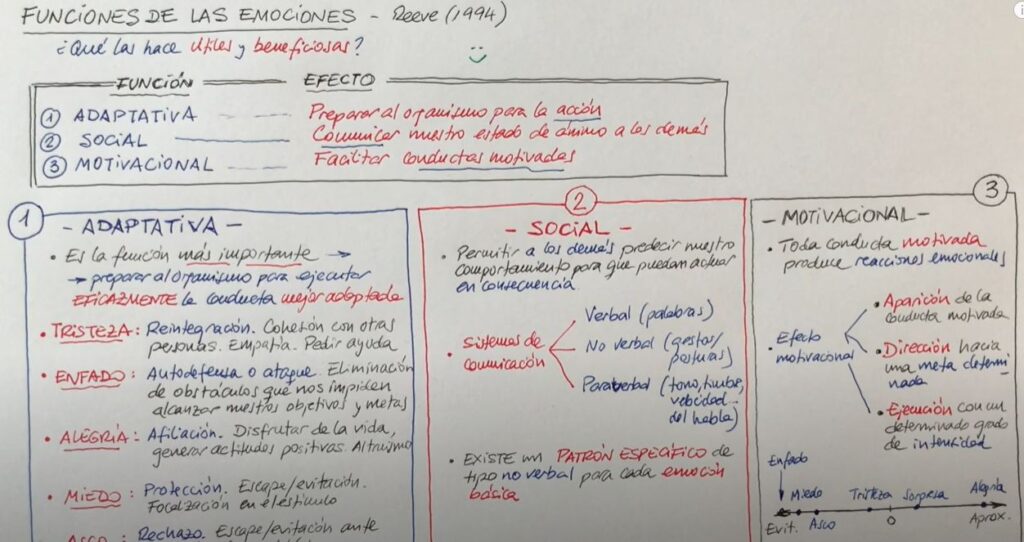 FUNCIONES DE LAS EMOCIONES - Reeve (1994)
¿Qué las hace útiles y beneficiosas?
FUNCIÓN EFECTO
① ADAPTATIVA Preparar al organismo para la acción
② SOCIAL Comunicar nuestro estado de ánimo a los demás
③ MOTIVACIONAL Facilitar conductas motivadas
1
- ADAPTATIVA -
• Es la función más importante →
→ preparar al organismo para ejecutar
EFICAZMENTE la conducta mejor adaptada
• TRISTEZA: Reintegración. Cohesión con otras
personas. Empatía. Pedir ayuda
• ENFADO: Autodefensa o ataque. Eliminación
de obstáculos que nos impiden
alcanzar nuestros objetivos y metas
• ALEGRÍA: Afiliación. Disfrutar de la vida,
generar actitudes positivas. Altruismo
• MIEDO: Protección. Escape/evitación.
Focalización en el estímulo
ASCO: Rechazo. Escape/evitación ante
2
- SOCIAL -
• Permitir a los demás predecir nuestro
comportamiento para que puedan actuar
en consecuencia
• Sistemas de
comunicación
Verbal (palabras)
No verbal (gestos/
posturas)
Paraverbal (tono, timbre,
velocidad
del habla)
• EXISTE un PATRÓN ESPECÍFICO de
tipo no verbal para cada emoción
básica
3
- MOTIVACIONAL -
• Toda conducta motivada
produce reacciones emocionales
• Efecto
motivacional
• Aparición de la
conducta motivada
• Dirección hacia
una meta determi-
nada
• Ejecución con un
determinado grado
de intensidad
Enfado
Miedo Tristeza Sorpresa Alegría
Evit. Asco 0 Aprox.